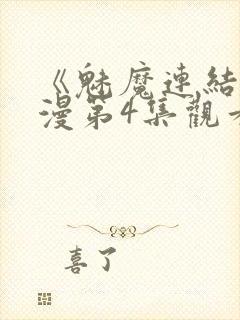 《魅魔連結
漫第4集觀
喜了